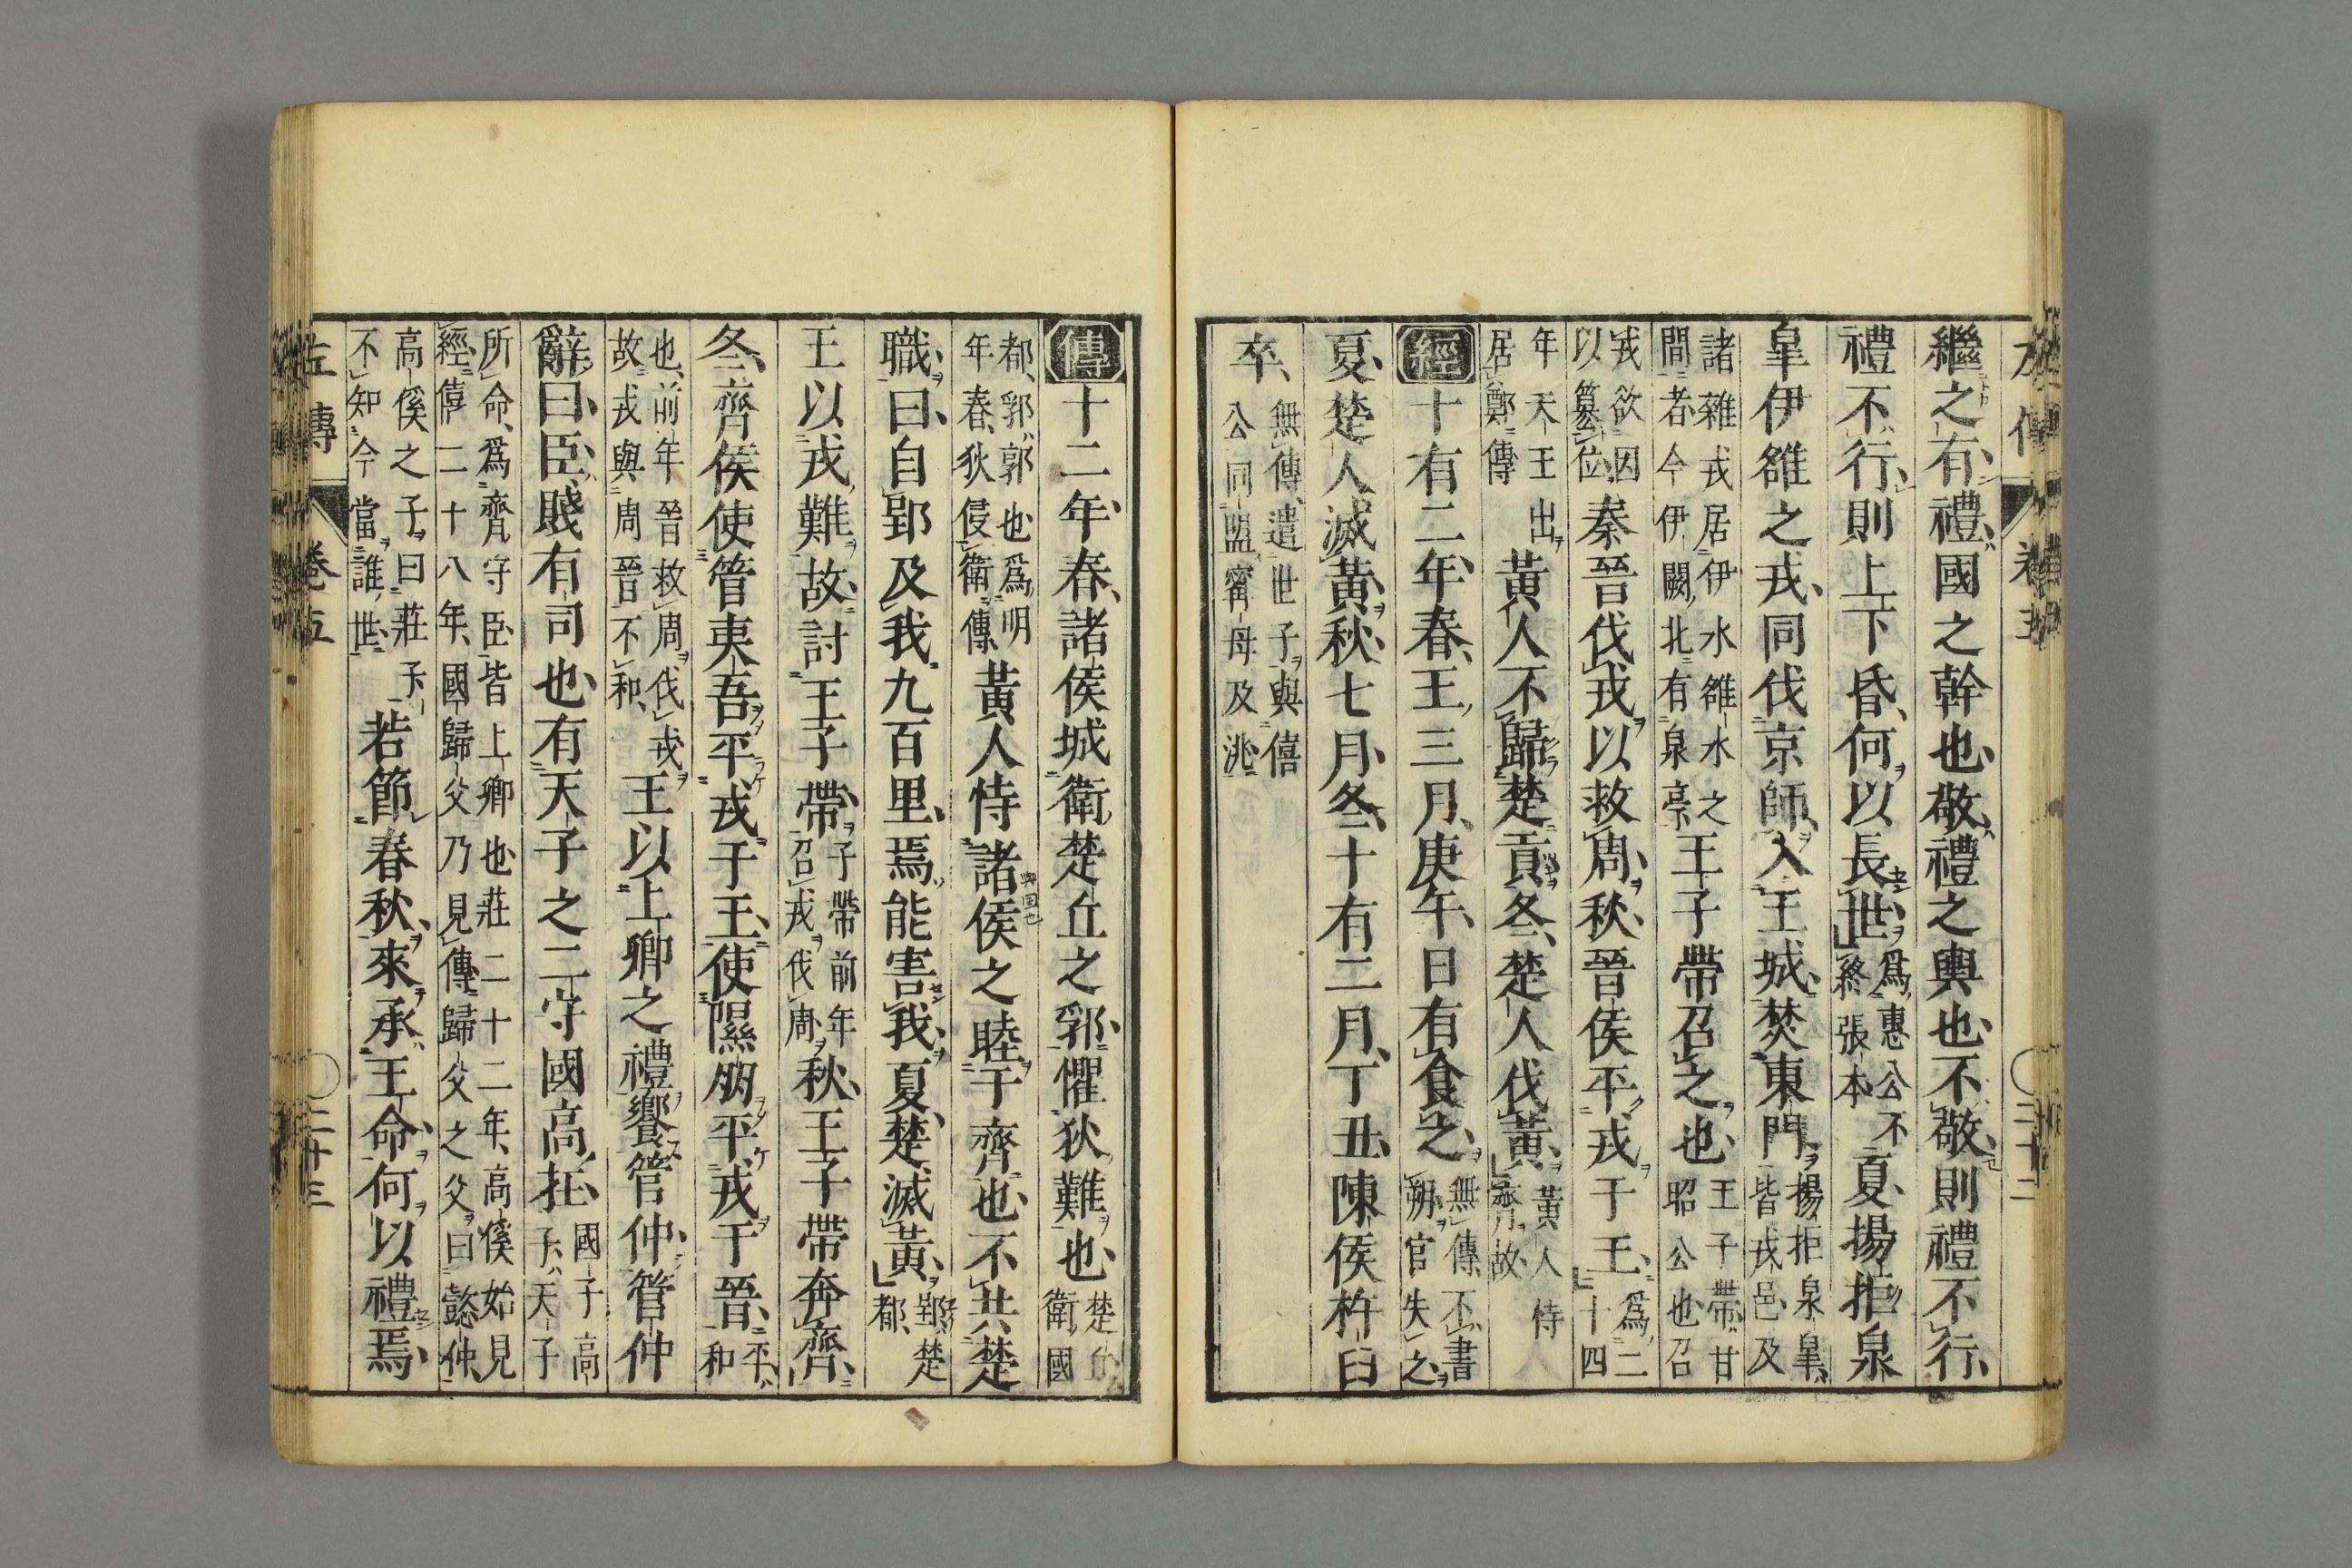 繼之有禮國之幹也敬禮之輿也不敬則禮不行
禮不行則上下昏何以長世爲惠公不終張本夏揚拒泉
皐伊雒之戎同伐京師入王城焚東門揚拒泉皐皆戎邑及
諸雜戎居伊水雒水之間者今伊闕北有泉亭王子帶召之也王子帶甘昭公也召
戎欲因以簒位秦晉伐戎以救周秋晉侯平戎于王爲二十四
年天王出居鄭傳黃人不歸楚貢冬楚人伐黃黃人恃齊故
經十有二年春王三月庚午日有食之無傳不書朔官失之
夏楚人滅黃秋七月冬十有二月丁丑陳侯杵臼
卒無傳遣世子與僖公同盟甯母及洮
左傳 卷五 二十二
傳十二年春諸侯城衛楚丘之郛懼狄難也楚丘衛國
都郛郭也爲明年春狄侵衛傳黃人恃諸侯之睦于齊也不共楚
職曰自郢及我九百里焉能害我夏楚滅黃郢楚都
王以戎難故討王子帶子帶前年召戎伐周秋王子帶奔齊
冬齊侯使管夷吾平戎于王使隰朋平戎于晉平和
也前年晉救周伐戎故戎與周晉不和王以上卿之禮饗管仲管仲
辭曰臣賤有司也有天子之二守國高在國子高子天子
所命爲齊守臣皆上卿也莊二十二年高傒始見經僖二十八年國歸父乃見傳歸父之父曰懿仲
高傒之子曰莊子不知今當誰世若節春秋來承王命何以禮焉
左傳 卷五 二十三